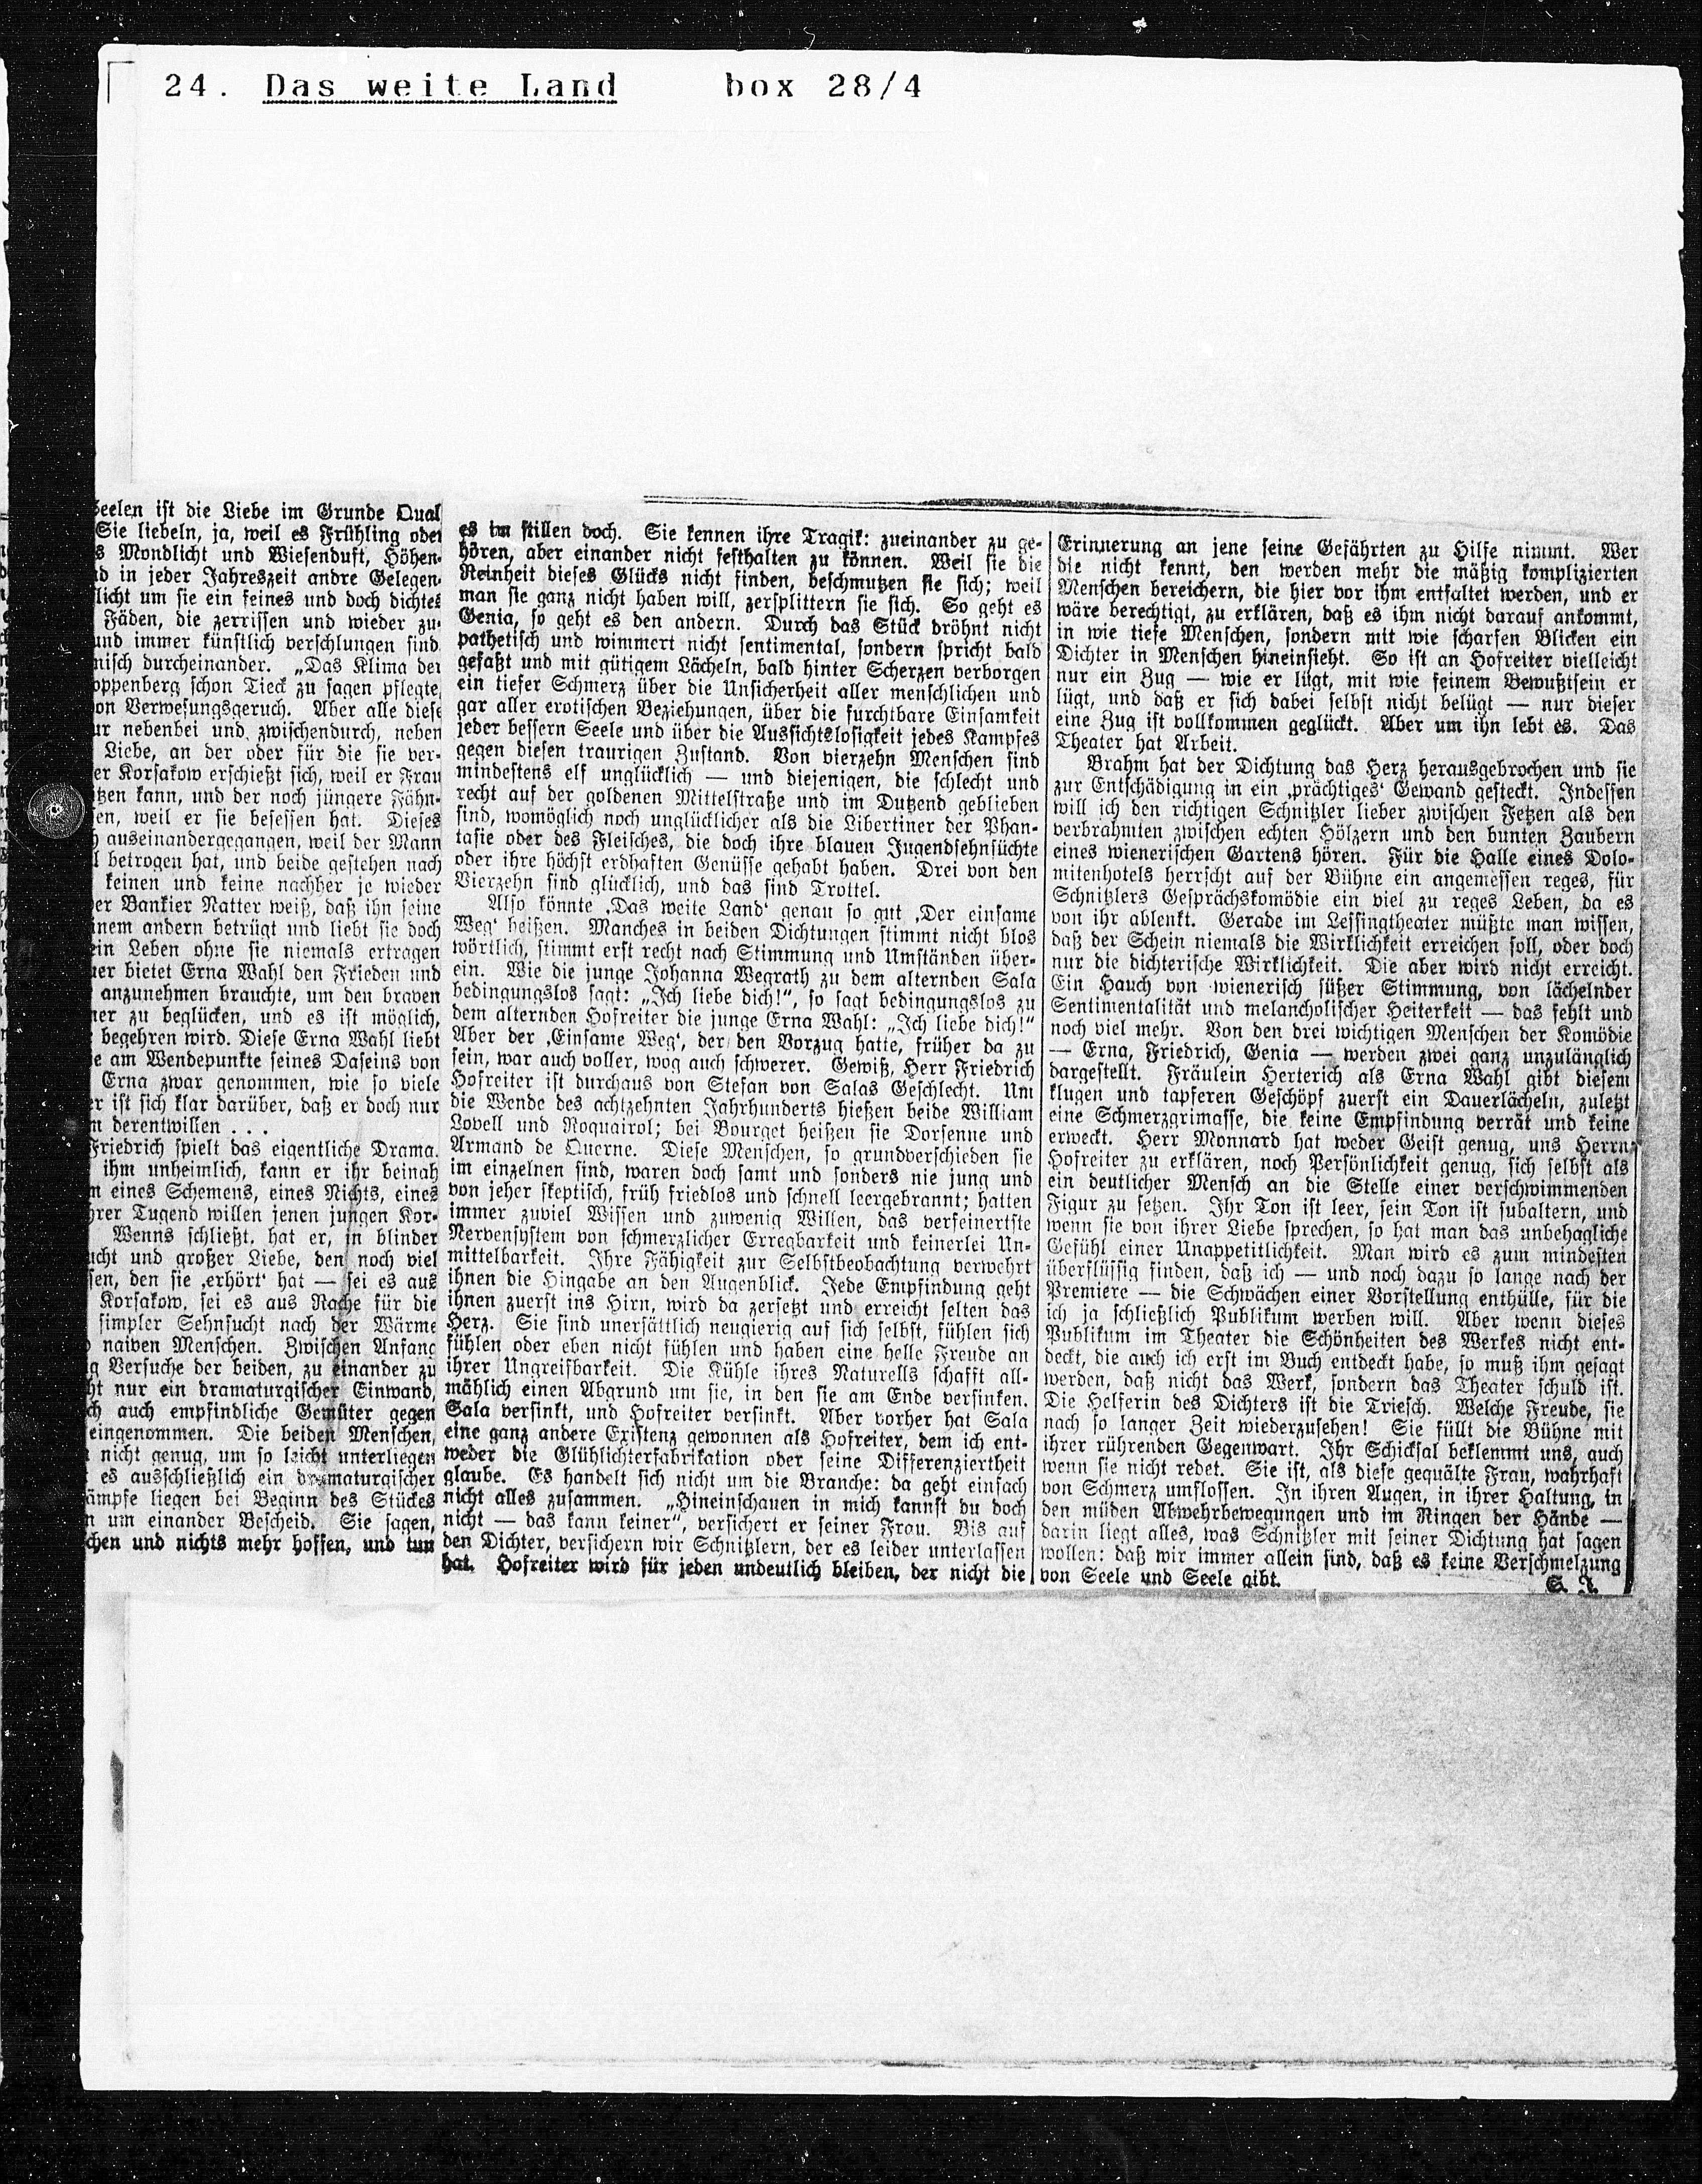 24. Das weite Land box 28/4
Seelen ist die Liebe im Grunde Qual
Sie liebeln, ja, weil es Frühling oder
s Mondlicht und Wiesenduft, Höhen-
d in jeder Jahreszeit andre Gelegen-
licht um sie ein feines und doch dichtes
Fäden, die zerrissen und wieder zu-
und immer künstlich verschlungen sind
nisch durcheinander. „Das Klima der
oppenberg schon Tieck zu sagen pflegte,
on Verwesungsgeruch. Aber alle diese
ur nebenbei und zwischendurch, neben
Liebe, an der oder für die sie ver-
er Korsakow erschießt sich, weil er Frau
tzen kann, und der noch jüngere Fähn-
en, weil er sie besessen hat. Dieses
h auseinandergegangen, weil der Mann
l betrogen hat, und beide gestehen nach
keinen und keine nachher je wieder
er Bankier Natter weiß, daß ihn seine
inem andern betrügt und liebt sie doch
ein Leben ohne sie niemals ertragen
uer bietet Erna Wahl den Frieden und
anzunehmen brauchte, um den braven
ner zu beglücken, und es ist möglich,
begehren wird. Diese Erna Wahl liebt
e am Wendepunkte seines Daseins von
Erna zwar genommen, wie so viele
er ist sich klar darüber, daß er doch nur
n derentwillen . . .
Friedrich spielt das eigentliche Drama.
ihm unheimlich, kann er ihr beinah
n eines Schemens, eines Nichts, eines
hrer Tugend willen jenen jungen Kor-
Wenns schließt, hat er, in blinder
ucht und großer Liebe, den noch viel
sen, den sie ‚erhört‘ hat — sei es aus
Korsakow, sei es aus Rache für die
simpler Sehnsucht nach der Wärme
naiven Menschen. Zwischen Anfang
g Versuche der beiden, zu einander zu
ht nur ein dramaturgischer Einwand,
ch auch empfindliche Gemüter gegen
eingenommen. Die beiden Menschen,
nicht genug, um so leicht unterliegen
es ausschließlich ein dramaturgischer
ämpfe liegen bei Beginn des Stückes
n um einander Bescheid. Sie sagen,
chen und nichts mehr hoffen, und tun
es im stillen doch. Sie kennen ihre Tragik: zueinander zu ge-
hören, aber einander nicht festhalten zu können. Weil sie die
Reinheit dieses Glücks nicht finden, beschmutzen sie sich; weil
man sie ganz nicht haben will, zersplittern sie sich. So geht es
Genia, so geht es den andern. Durch das Stück dröhnt nicht
pathetisch und wimmert nicht sentimental, sondern spricht bald
gefaßt und mit gütigem Lächeln, bald hinter Scherzen verborgen
ein tiefer Schmerz über die Unsicherheit aller menschlichen und
gar aller erotischen Beziehungen, über die furchtbare Einsamkeit
jeder bessern Seele und über die Aussichtslosigkeit jedes Kampfes
gegen diesen traurigen Zustand. Von vierzehn Menschen sind
mindestens elf unglücklich — und diejenigen, die schlecht und
recht auf der goldenen Mittelstraße und im Dutzend geblieben
sind, womöglich noch unglücklicher als die Libertiner der Phan-
tasie oder des Fleisches, die doch ihre blauen Jugendsehnsüchte
oder ihre höchst erdhaften Genüsse gehabt haben. Drei von den
Vierzehn sind glücklich, und das sind Trottel.
Also könnte ‚Das weite Land‘ genau so gut ‚Der einsame
Weg‘ heißen. Manches in beiden Dichtungen stimmt nicht blos
wörtlich, stimmt erst recht nach Stimmung und Umständen über-
ein. Wie die junge Johanna Wegrath zu dem alternden Sala
bedingungslos sagt: „Ich liebe dich!“, so sagt bedingungslos zu
dem alternden Hofreiter die junge Erna Wahl: „Ich liebe dich!“
Aber der ‚Einsame Weg‘, der den Vorzug hatte, früher da zu
sein, war auch voller, wog auch schwerer. Gewiß, Herr Friedrich
Hofreiter ist durchaus von Stefan von Salas Geschlecht. Um
die Wende des achtzehnten Jahrhunderts hießen beide William
Lovell und Roquairol; bei Bourget heißen sie Dorsenne und
Armand de Querne. Diese Menschen, so grundverschieden sie
im einzelnen sind, waren doch samt und sonders nie jung und
von jeher skeptisch, früh friedlos und schnell leergebrannt; hatten
immer zuviel Wissen und zuwenig Willen, das verfeinertste
Nervensystem von schmerzlicher Erregbarkeit und keinerlei Un-
mittelbarkeit. Ihre Fähigkeit zur Selbstbeobachtung verwehrt
ihnen die Hingabe an den Augenblick. Jede Empfindung geht
ihnen zuerst ins Hirn, wird da zersetzt und erreicht selten das
Herz. Sie sind unersättlich neugierig auf sich selbst, fühlen sich
fühlen oder eben nicht fühlen und haben eine helle Freude an
ihrer Ungreifbarkeit. Die Kühle ihres Naturells schafft all-
mählich einen Abgrund um sie, in den sie am Ende versinken.
Sala versinkt, und Hofreiter versinkt. Aber vorher hat Sala
eine ganz andere Existenz gewonnen als Hofreiter, dem ich ent-
weder die Glühlichterfabrikation oder seine Differenziertheit
glaube. Es handelt sich nicht um die Branche: da geht einfach
nicht alles zusammen. „Hineinschauen in mich kannst du doch
nicht — das kann keiner“, versichert er seiner Frau. Bis auf
den Dichter, versichern wir Schnitzlern, der es leider unterlassen
hat. Hofreiter wird für jeden undeutlich bleiben, der nicht die
Erinnerung an jene seine Gefährten zu Hilfe nimmt. Wer
die nicht kennt, den werden mehr die mäßig komplizierten
Menschen bereichern, die hier vor ihm entfaltet werden, und er
wäre berechtigt, zu erklären, daß es ihm nicht darauf ankommt,
in wie tiefe Menschen, sondern mit wie scharfen Blicken ein
Dichter in Menschen hineinsieht. So ist an Hofreiter vielleicht
nur ein Zug — wie er lügt, mit wie feinem Bewußtsein er
lügt, und daß er sich dabei selbst nicht belügt — nur dieser
eine Zug ist vollkommen geglückt. Aber um ihn lebt es. Das
Theater hat Arbeit.
Brahm hat der Dichtung das Herz herausgebrochen und sie
zur Entschädigung in ein ‚prächtiges‘ Gewand gesteckt. Indessen
will ich den richtigen Schnitzler lieber zwischen Fetzen als den
verbrahmten zwischen echten Hölzern und den bunten Zaubern
eines wienerischen Gartens hören. Für die Halle eines Dolo-
mitenhotels herrscht auf der Bühne ein angemessen reges, für
Schnitzlers Gesprächskomödie ein viel zu reges Leben, da es
von ihr ablenkt. Gerade im Lessingtheater müßte man wissen,
daß der Schein niemals die Wirklichkeit erreichen soll, oder doch
nur die dichterische Wirklichkeit. Die aber wird nicht erreicht.
Ein Hauch von wienerisch süßer Stimmung, von lächelnder
Sentimentalität und melancholischer Heiterkeit — das fehlt und
noch viel mehr. Von den drei wichtigen Menschen der Komödie
— Erna, Friedrich, Genia — werden zwei ganz unzulänglich
dargestellt. Fräulein Herterich als Erna Wahl gibt diesem
klugen und tapferen Geschöpf zuerst ein Dauerlächeln, zuletzt
eine Schmerzgrimasse, die keine Empfindung verrät und keine
erweckt. Herr Monnard hat weder Geist genug, uns Herrn
Hofreiter zu erklären, noch Persönlichkeit genug, sich selbst als
ein deutlicher Mensch an die Stelle einer verschwimmenden
Figur zu setzen. Ihr Ton ist leer, sein Ton ist subaltern, und
wenn sie von ihrer Liebe sprechen, so hat man das unbehagliche
Gefühl einer Unappetitlichkeit. Man wird es zum mindesten
überflüssig finden, daß ich — und noch dazu so lange nach der
Premiere — die Schwächen einer Vorstellung enthülle, für die
ich ja schließlich Publikum werben will. Aber wenn dieses
Publikum im Theater die Schönheiten des Werkes nicht ent-
deckt, die auch ich erst im Buch entdeckt habe, so muß ihm gesagt
werden, daß nicht das Werk, sondern das Theater schuld ist.
Die Helferin des Dichters ist die Triesch. Welche Freude, sie
nach so langer Zeit wiederzusehen! Sie füllt die Bühne mit
ihrer rührenden Gegenwart. Ihr Schicksal beklemmt uns, auch
wenn sie nicht redet. Sie ist, als diese gequälte Frau, wahrhaft
von Schmerz umflossen. In ihren Augen, in ihrer Haltung, in
den müden Abwehrbewegungen und im Ringen der Hände —
darin liegt alles, was Schnitzler mit seiner Dichtung hat sagen
wollen: daß wir immer allein sind, daß es keine Verschmelzung
von Seele und Seele gibt.
S. J.